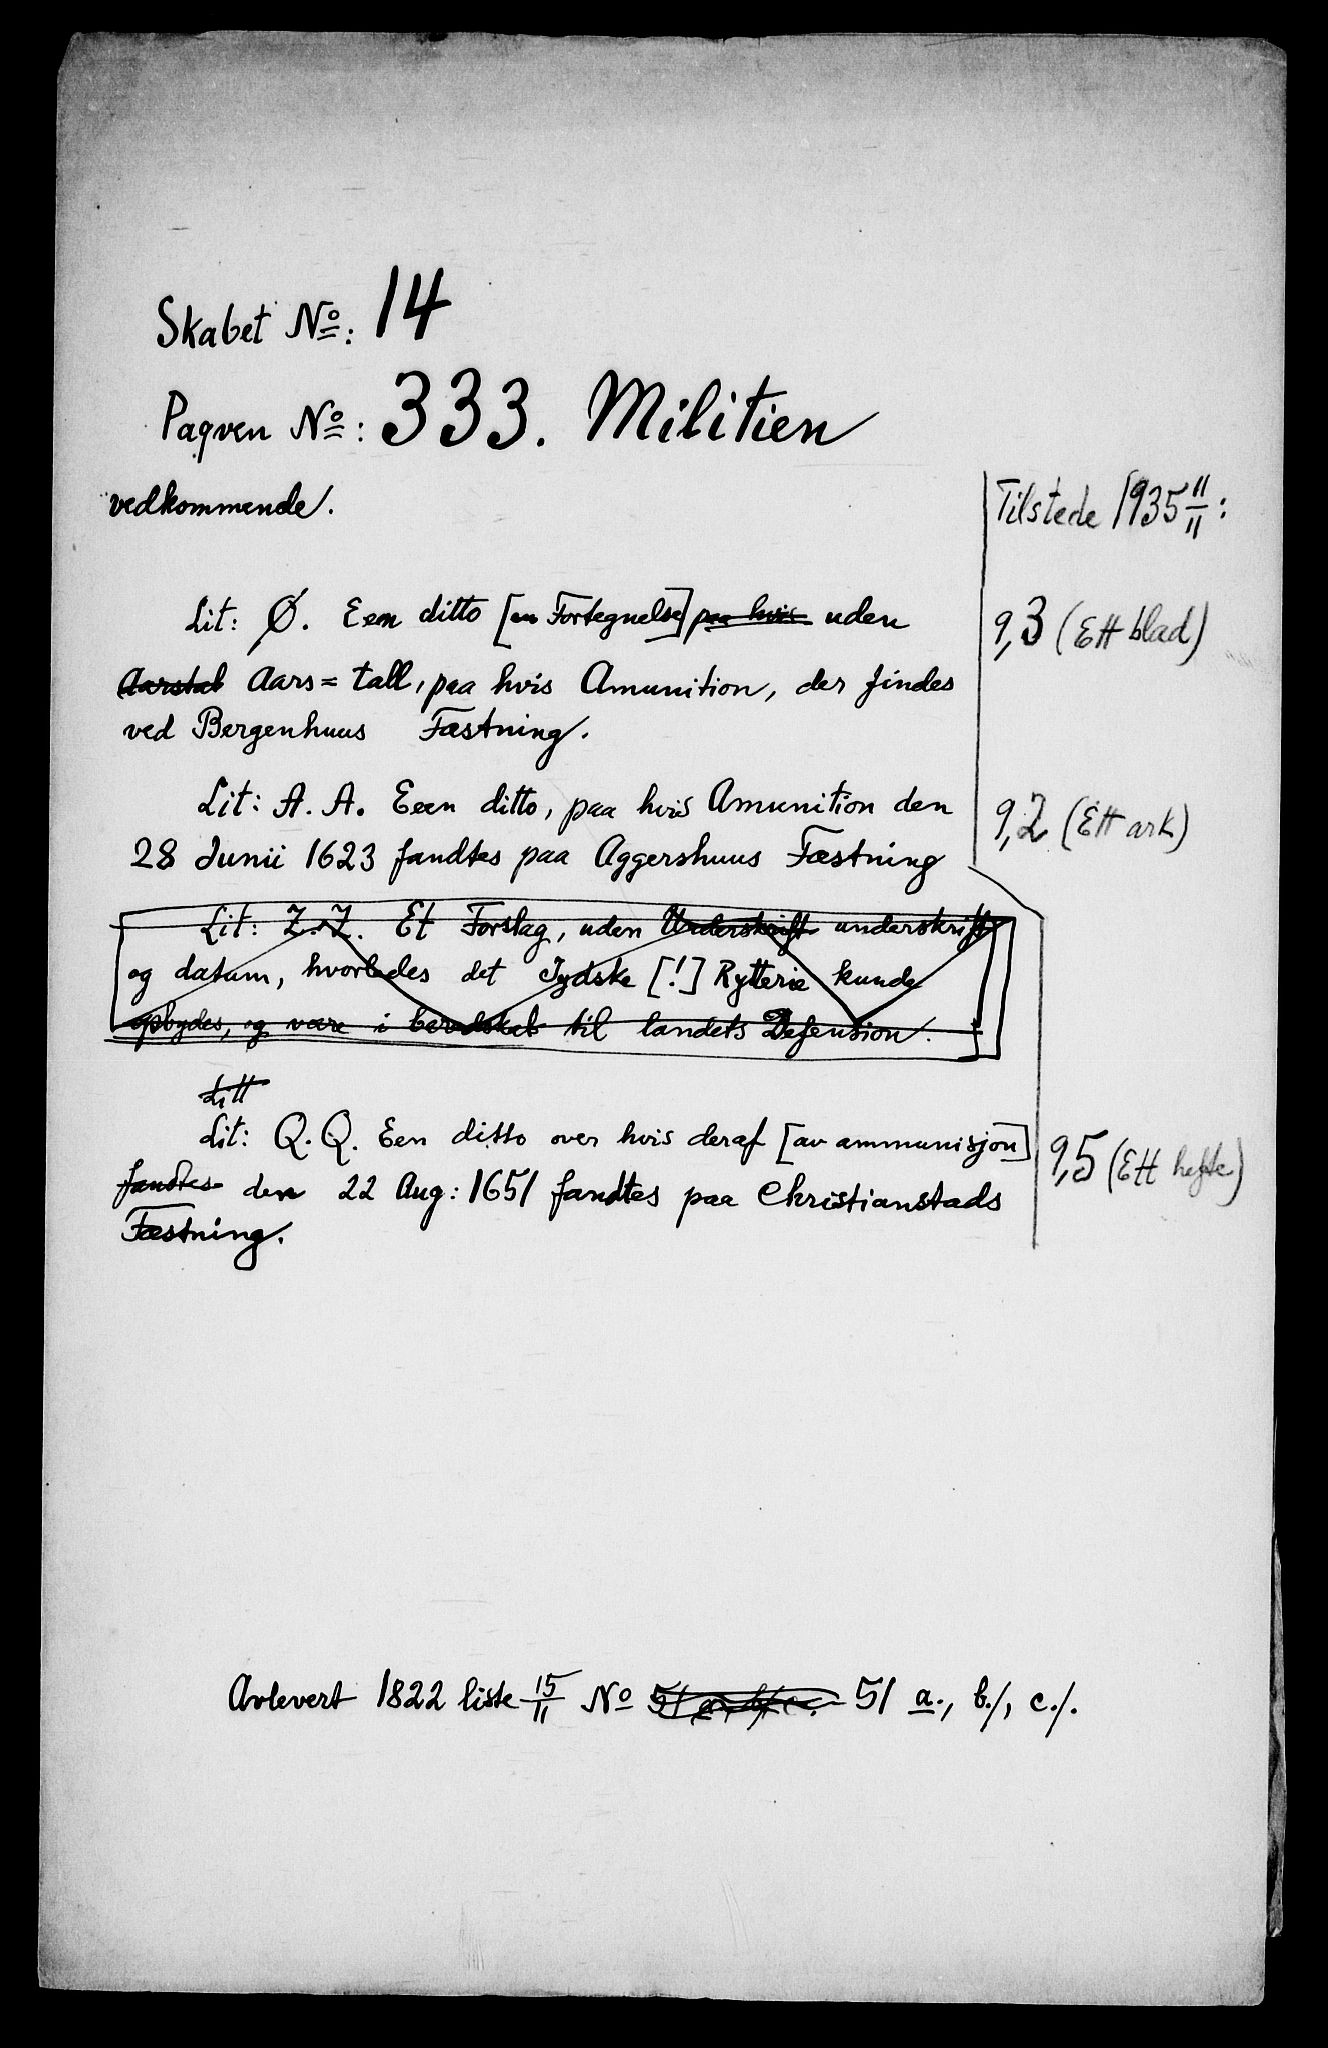 Skabet No: 14
Paqven No: 333. Militien
vedkommende.
Tilstede 1935 11/11:
Lit: Ø. Een ditto [en Fortegnelse] paa hvis uden
9,3 (Ett blad)
Aarstal Aars= tall, paa hvis Amunition, der findes
ved Bergenhuus Fæstning.
Lit: A. A. Een ditto, paa hvis Amunition den
9,2 (Ett ark)
28 Junii 1623 fandtes paa Aggershuus Fæstning
Lit: Z. Z. Et Forslag, uden Underskrift underskrift
og datum, hvorledes det Jydske [!] Rytterie kunde
opbydes, og være i beredskab til landets Defension.
Litt
Lit: Q. Q. Een ditto over hvis deraf [av ammunisjon]
9,5 (Ett hefte)
fandtes den 22 Aug: 1651 fandtes paa Christianstads
Fæstning.
Avlevert 1822 liste 15/11 No 51 a., b./, c./.